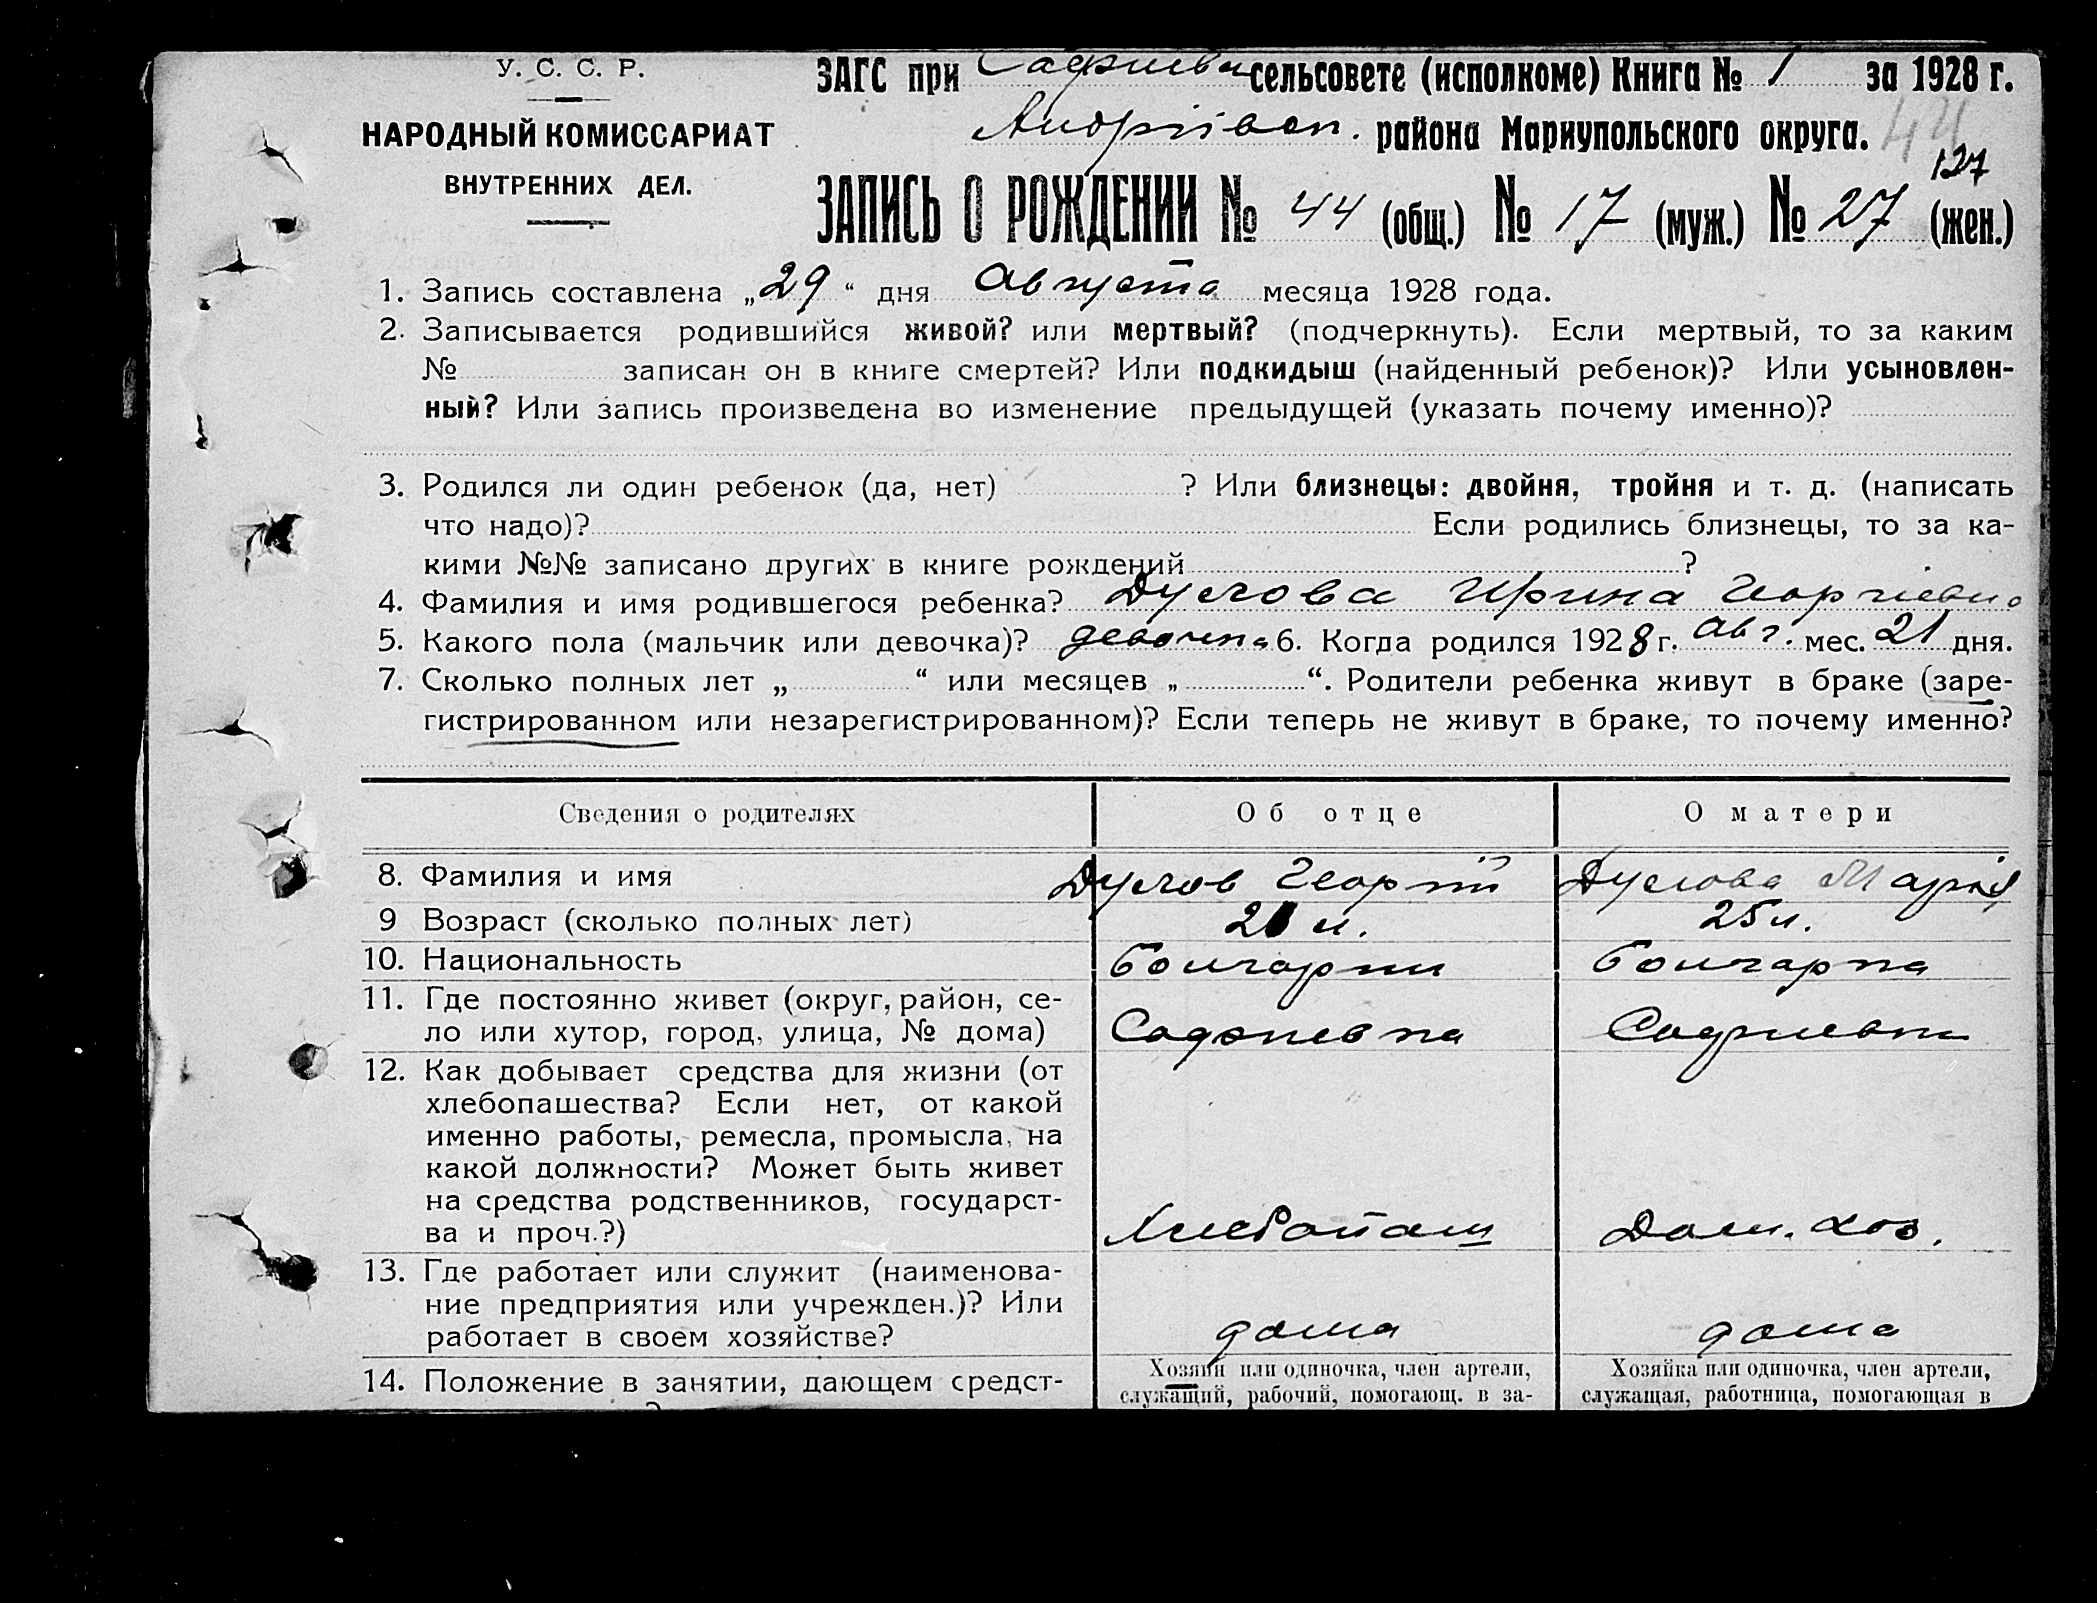 У. С. С. Р.
НАРОДНЫЙ КОМИССАРИАТ
ВНУТРЕННИХ ДЕЛ.
ЗАГС при сельсовете (исполкоме) Книга № 1 за 1928 г.
Андріівск. района Мариупольского округа. 44
127
ЗАПИСЬ О РОЖДЕНИИ № 44 (общ.) № 17 (муж.) № 27 (жен.)
1. Запись составлена „29“ дня Августа месяца 1928 года.
2. Записывается родившийся живой? или мертвый? (подчеркнуть). Если мертвый, то за каким
№ записан он в книге смертей? Или подкидыш (найденный ребенок)? Или усыновлен-
ный? Или запись произведена во изменение предыдущей (указать почему именно)?
3. Родился ли один ребенок (да, нет) ? Или близнецы: двойня, тройня и т. д. (написать
что надо)? Если родились близнецы, то за ка-
кими №№ записано других в книге рождений ?
4. Фамилия и имя родившегося ребенка? Дуслова Ирина Георгіевна
5. Какого пола (мальчик или девочка)? девочка 6. Когда родился 1928 г. Авг. мес. 21 дня.
7. Сколько полных лет „ “ или месяцев „ “. Родители ребенка живут в браке (заре-
гистрированном или незарегистрированном)? Если теперь не живут в браке, то почему именно?
Сведения о родителях Об отце О матери
8. Фамилия и имя Дуслов Георгий Дуслова Марія
9 Возраст (сколько полных лет) л. 25 л.
10. Национальность болгарин болгарка
11. Где постоянно живет (округ, район, се-
ло или хутор, город, улица, № дома)
12. Как добывает средства для жизни (от
хлебопашества? Если нет, от какой
именно работы, ремесла, промысла, на
какой должности? Может быть живет
на средства родственников, государст-
ва и проч.?) Хлебопаш Дом. хоз.
13. Где работает или служит (наименова-
ние предприятия или учрежден.)? Или
работает в своем хозяйстве? дома дома
14. Положение в занятии, дающем средст-
Хозяин или одиночка, член артели,
служащий, рабочий, помогающ. в за-
Хозяйка или одиночка, член артели,
служащая, работница, помогающая в